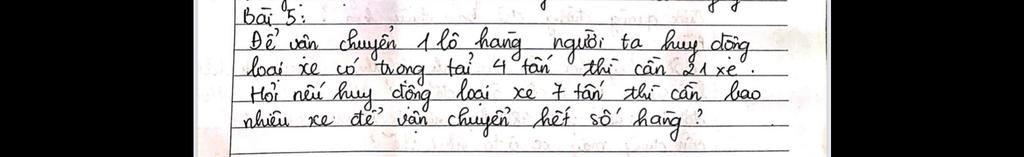 Bài 5:
Để vận chuyển 1 lô hang người ta huy dộng
loại xe có trong tải 4 tấn thì cần 21 xe.
Hỏi nếu huy dộng loại xe 7 tấn thì cần bao
nhiêu xe để vận chuyển hết số hàng?